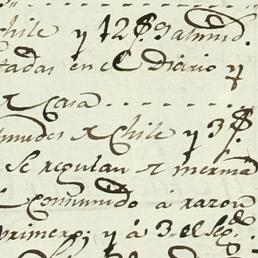 Chile y 12 f.s 9 almud.
tadas en el Diario y
Casa
mudes Chile y 3 f.s
se regulan merma
consumido á razon
primero; y á 3 el seg.do